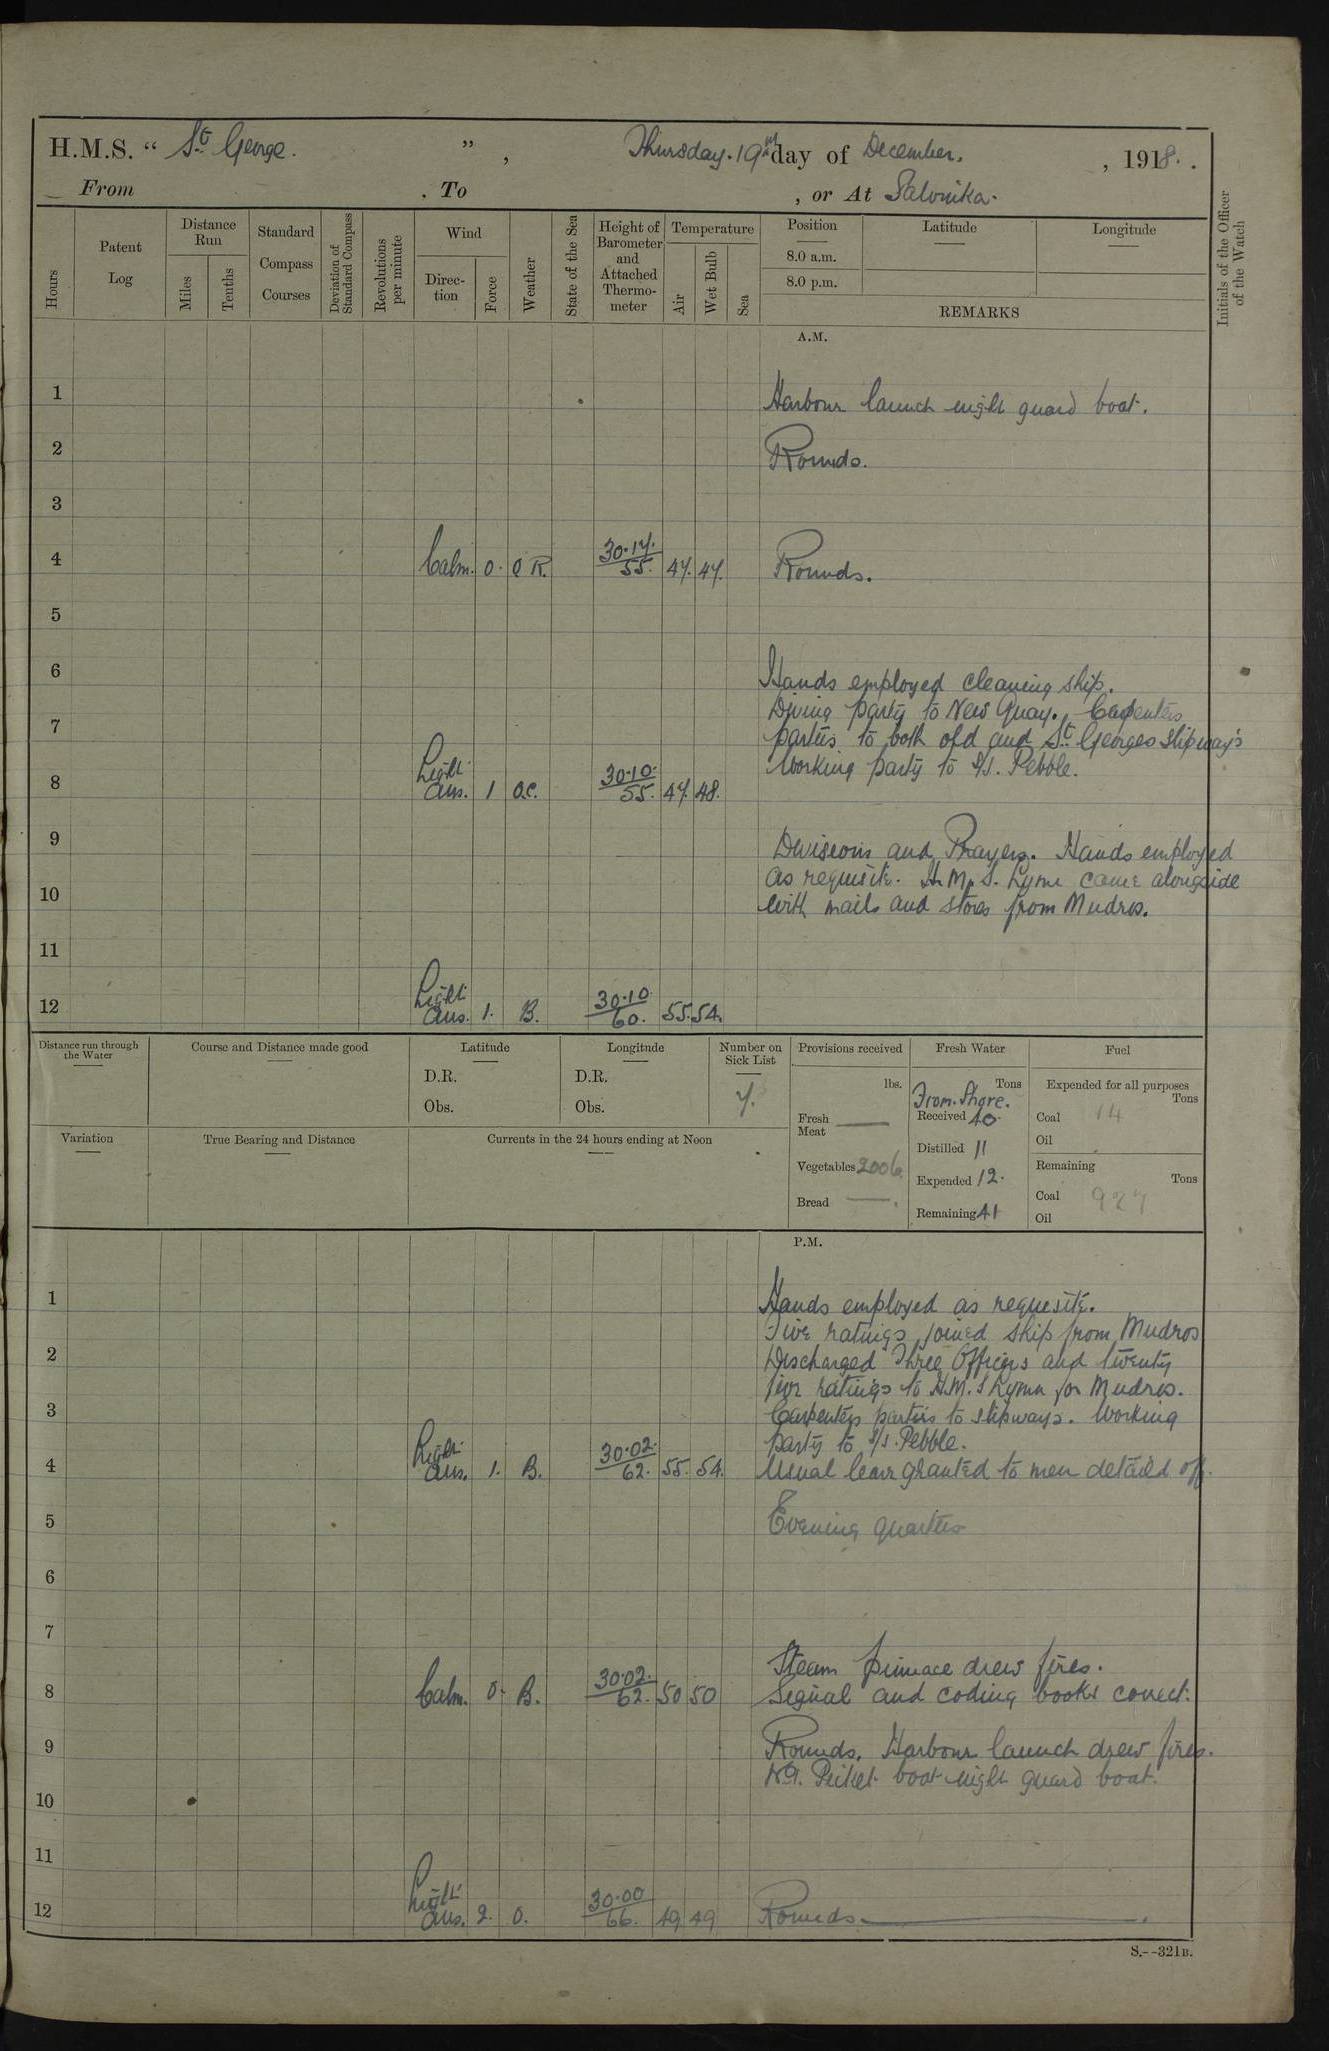 H.M.S. “ St George. ” , Thursday. 19th day of December. , 1918. .
From . To , or At Salonika.
Hours
Patent Log
Distance Run
Miles
Tenths
Standard Compass Courses
Deviation of Standard Compass
Revolutions per minute
Wind
Direction
Force
Weather
State of the Sea
Height of Barometer and Attached Thermometer
Temperature
Air
Wet Bulb
Sea
Position
8.0 a.m.
8.0 p.m.
Latitude
Longitude
REMARKS
Initials of the Officer of the Watch
A.M.
1 Harbour launch night guard boat.
2 Rounds.
3
4 Calm. 0. O R. 30.17. 55. 47. 47. Rounds.
5
6 Hands employed cleaning ship.
Diving party to New Quay. Carpenters
7 parties to both old and St Georges slipway's
Working party to S/S. Pebble.
8 Light Airs. 1 O.C. 30.10. 55. 47. 48.
9 Divisions and Prayers. Hands employed
as requisite. H.M.S. Lyme came alongside
10 with mails and stores from Mudros.
11
12 Light Airs. 1. B. 30.10 60. 55. 54.
Distance run through the Water
Course and Distance made good
Latitude
D.R.
Obs.
Longitude
D.R.
Obs.
Number on Sick List
7.
Provisions received
lbs.
Fresh Meat ——
Vegetables 200lb
Bread ——.
Fresh Water
Tons
From. Shore.
Received 40.
Distilled 11
Expended 12.
Remaining 41
Fuel
Expended for all purposes
Tons
Coal 14
Oil
Remaining
Tons
Coal 927
Oil
Variation
True Bearing and Distance
Currents in the 24 hours ending at Noon
P.M.
1 Hands employed as requisite.
Five ratings joined ship from Mudros
2 Discharged Three Officers and twenty
five ratings to H.M.S Lyme for Mudros.
3 Carpenters parties to slipways. Working
party to S/S. Pebble.
4 Light Airs. 1. B. 30.02. 62. 55. 54. Usual leave granted to men detailed off.
5 Evening quarters
6
7
Steam pinnace drew fires.
8 Calm. 0. B. 30.02. 62. 50 50 Signal and coding books correct.
9 Rounds. Harbour launch drew fires.
No 1. Picket boat night guard boat.
10
11
12 Light Airs. 2. O. 30.00 66. 49 49 Rounds.
S.--321B.